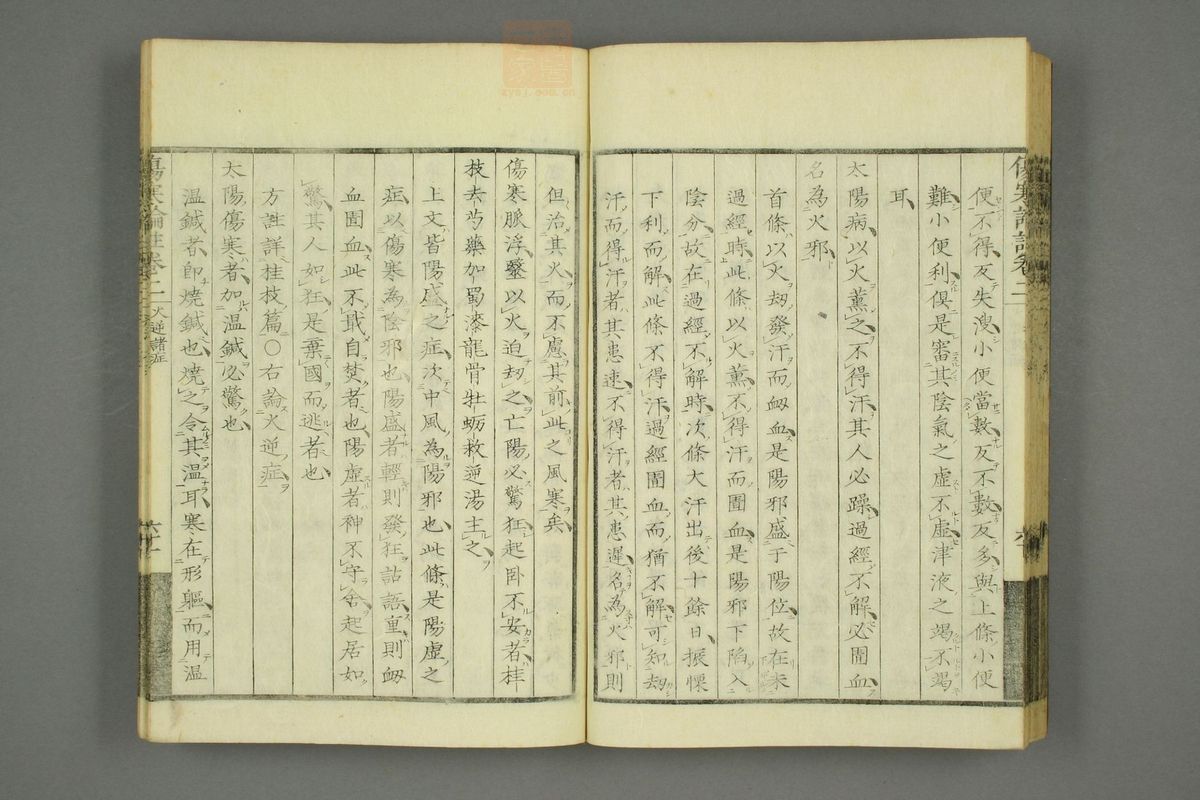 便不得反失溲小便當數反不數反多與上條小便
難小便利俱是審其陰氣之虛不虛津液之竭不竭
耳
太陽病以火薰之不得汗其人必躁過經不解必圊血
名為火邪
首條以火劫發汗而衄血是陽邪盛于陽位故在未
過經時此條以火薰不得汗而圊血是陽邪下陷入
陰分故在過經不解時次條大汗出後十餘日振慄
下利而解此條不得汗過經圊血而猶不解可知劫
汗而得汗者其患速不得汗者其患遲名為火邪則
但治其火而不慮其前此之風寒矣
傷寒脈浮醫以火迫劫之亡陽必驚狂起卧不安者桂
枝去芍藥加蜀漆龍骨牡蛎救逆湯主之
上文皆陽盛之症次中風為陽邪也此條是陽虛之
症以傷寒為陰邪也陽盛者輕則發狂詀語重則衄
血圊血此不戢自焚者也陽虛者神不守舍起居如
驚其人如狂是棄國而逃者也
方註詳桂枝篇○右論火逆症
太陽傷寒者加温鍼必驚也
温鍼者即燒鍼也燒之令其温耳寒在形軀而用温
傷寒論註卷二 火逆諸症